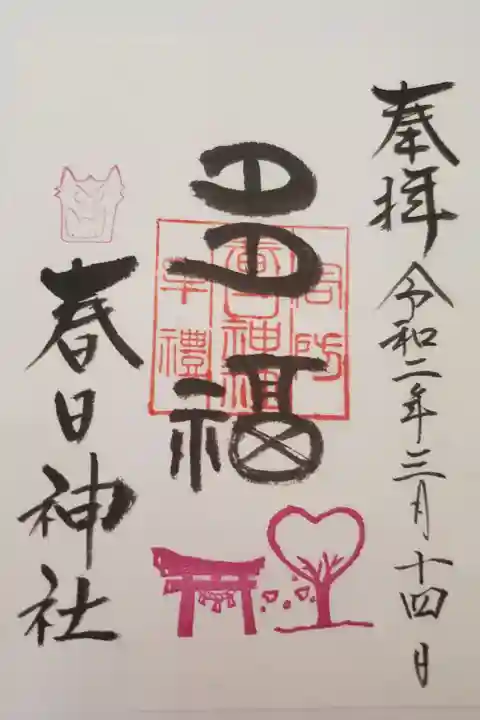 奉拝 令和二年三月十四日
多福
周防
春日神社
牟禮
春日神社